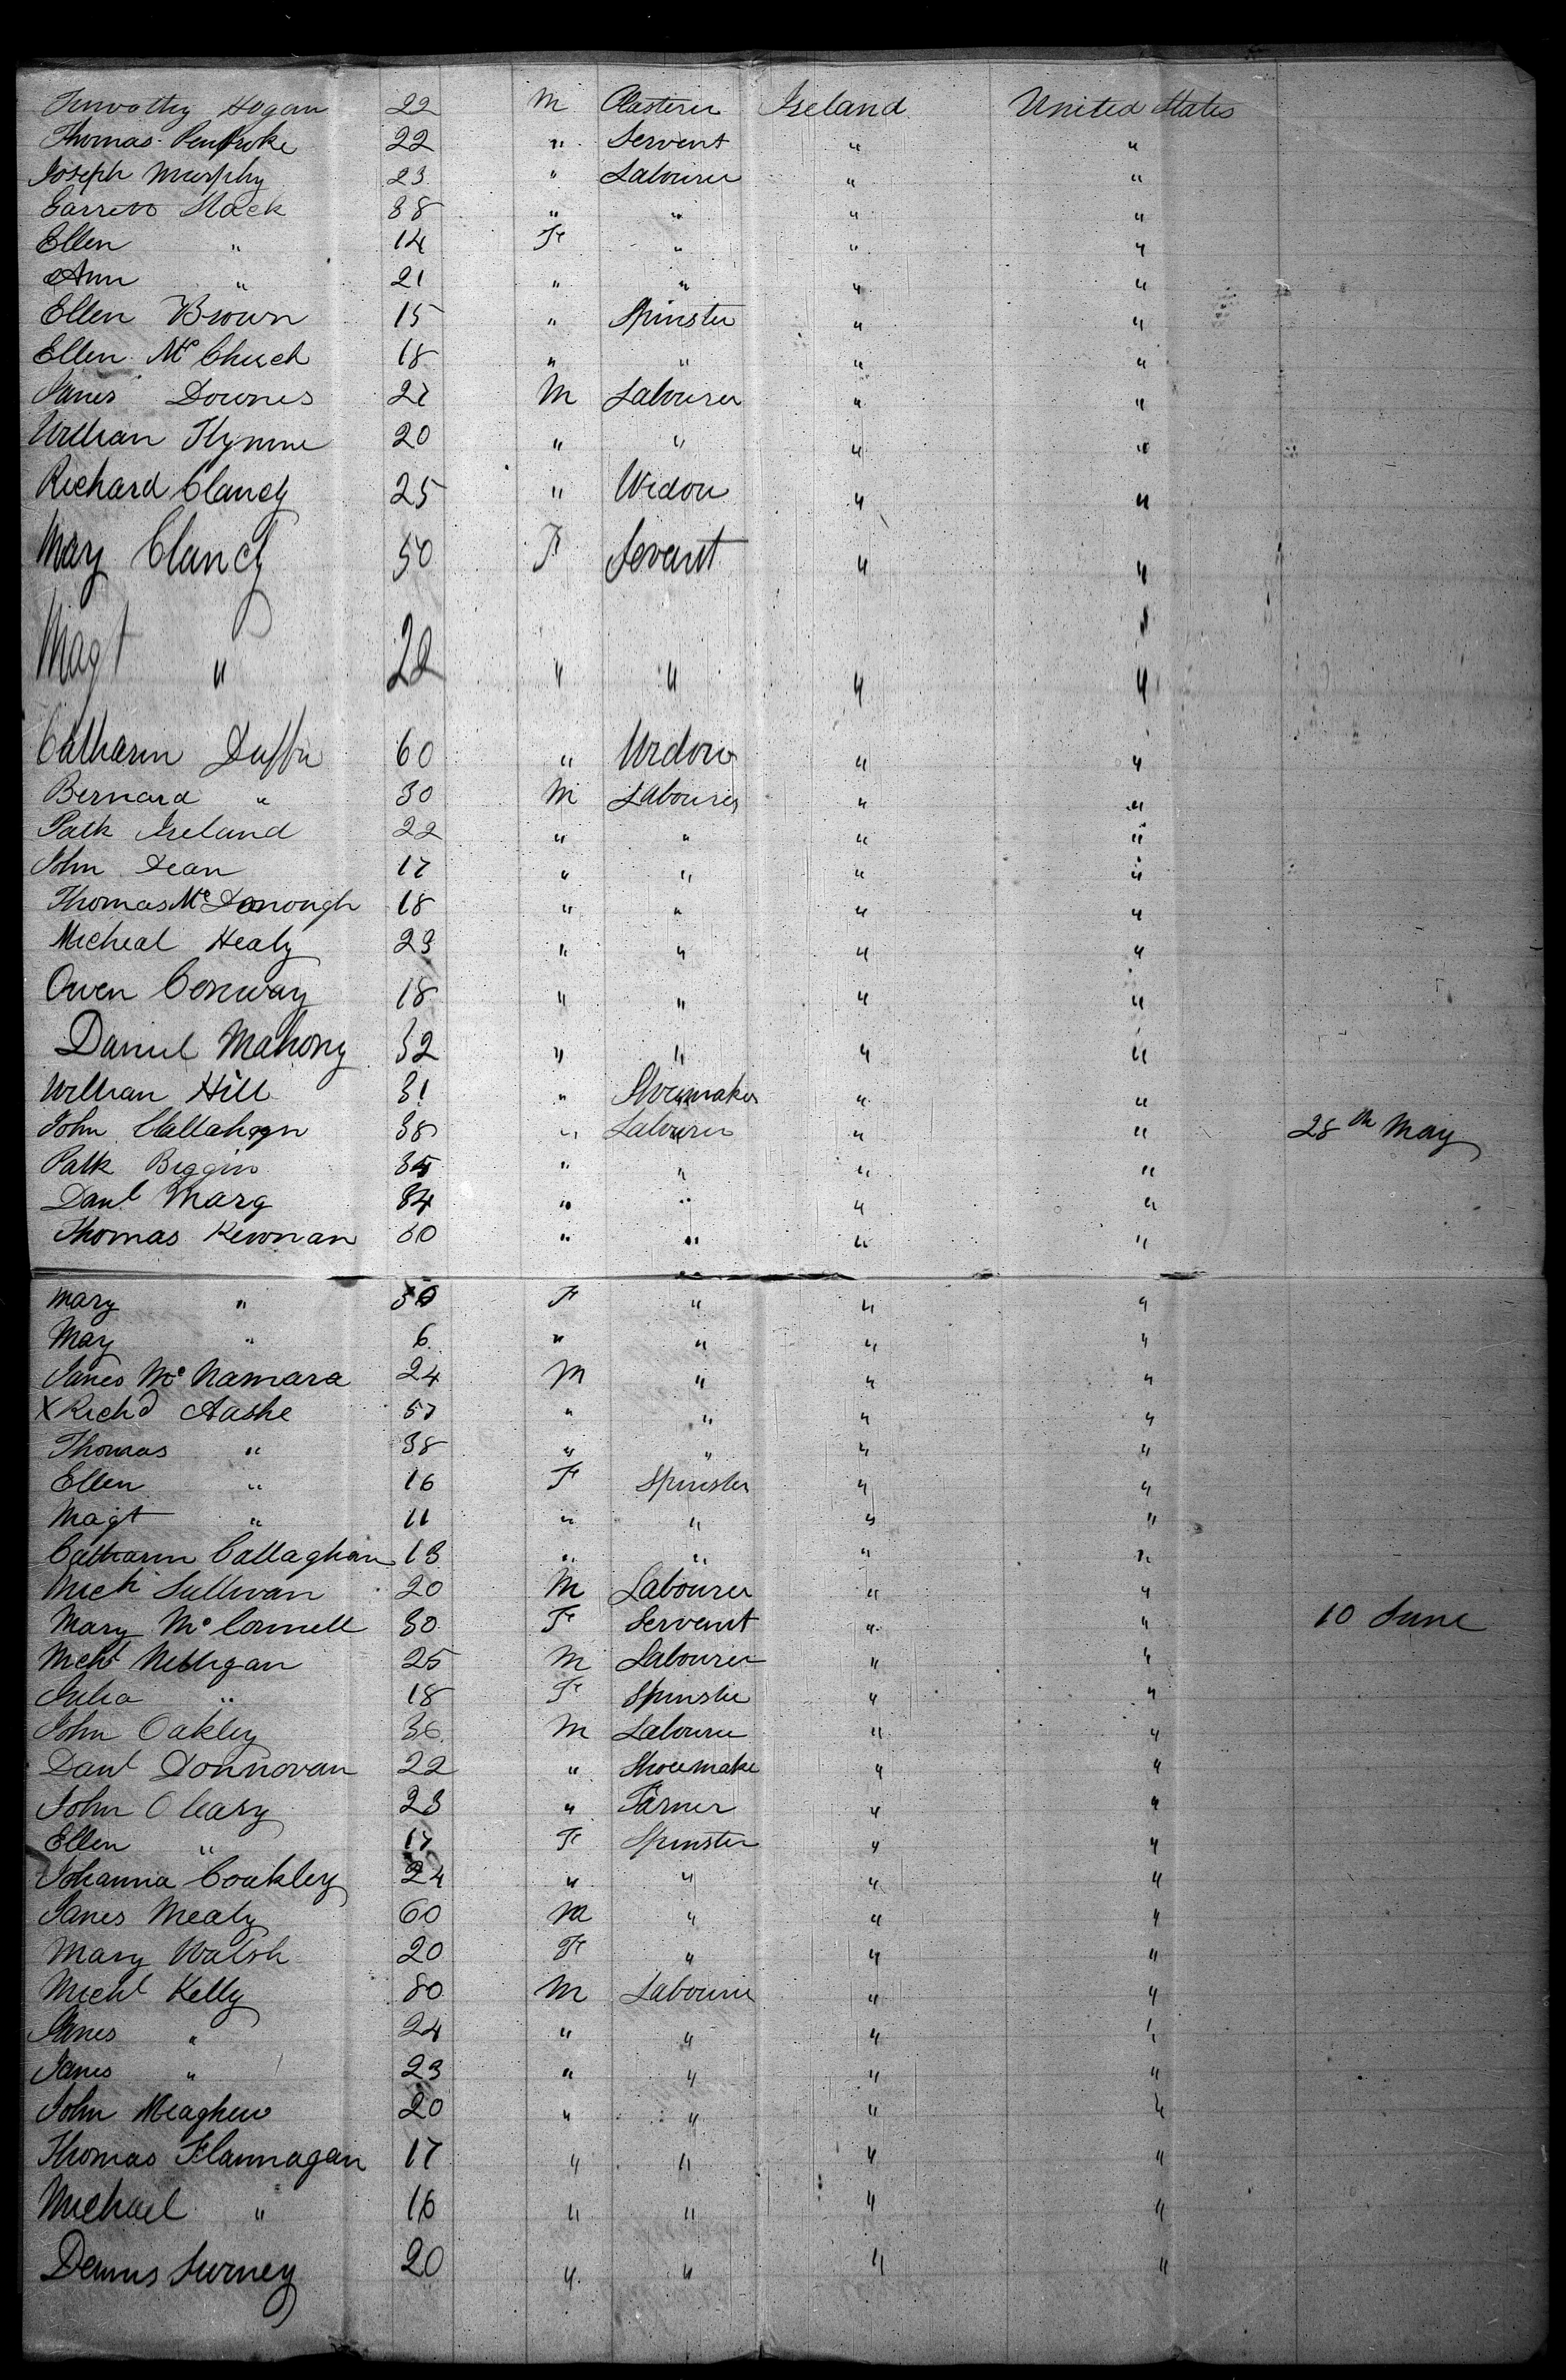 Timothy Hogan 22 M Plasterer Ireland United States
Thomas Pembroke 22 " Servent " "
Joseph Murphy 23 " Labourer " "
Garrett Stack 38 " " " "
Ellen " 14 F " " "
Ann " 21 " " " "
Ellen Brown 15 " Spinster " "
Ellen Mc 18 " " " "
James Downes 27 M Labourer " "
William Flynne 20 " " " "
Richard Clancy 25 " Widow " "
Mary Clancy 50 F Servant " "
Magt " 22 " " " "
Catharin 60 " Widow " "
Bernard " 30 M Labourer " "
Patk Ireland 22 " " " "
John Dean 17 " " " "
Thomas Mc Donough 18 " " " "
Micheal Healy 23 " " " "
Owen Conway 18 " " " "
Daniel Mahony 32 " " " "
William Hill 31 " Shoemaker " "
John Callahan 38 " Labourer " " 28th May
Patk Biggin 35 " " " "
Danl 34 " " " "
Thomas 60 " " " "
Mary " 50 F " " "
May " 6 " " " "
James Mc Namara 24 M " " "
X Richd Aashe 57 " " " "
Thomas " 38 " " " "
Ellen " 16 F Spinster " "
Magt " 11 " " " "
Catharin Callaghan 13 " " " "
Mich Sullivan 20 M Labourer " "
Mary Mc Connell 30 F Servent " " 10 June
Michl Nelligan 25 M Labourer " "
Julia " 18 F Spinster " "
John Oakley 36 M Labourer " "
Danl Donnovan 22 " Shoemake " "
John OLeary 23 " Farmer " "
Ellen " 17 F Spinster " "
Johanna Coakley 24 " " " "
James Mealy 60 M " " "
Mary Walsh 20 F " " "
Michl Kelly 30 M Labourer " "
James " 24 " " " "
James " 23 " " " "
John Meagher 20 " " " "
Thomas Flannagan 17 " " " "
Michael " 16 " " " "
Dennis 20 " " " "